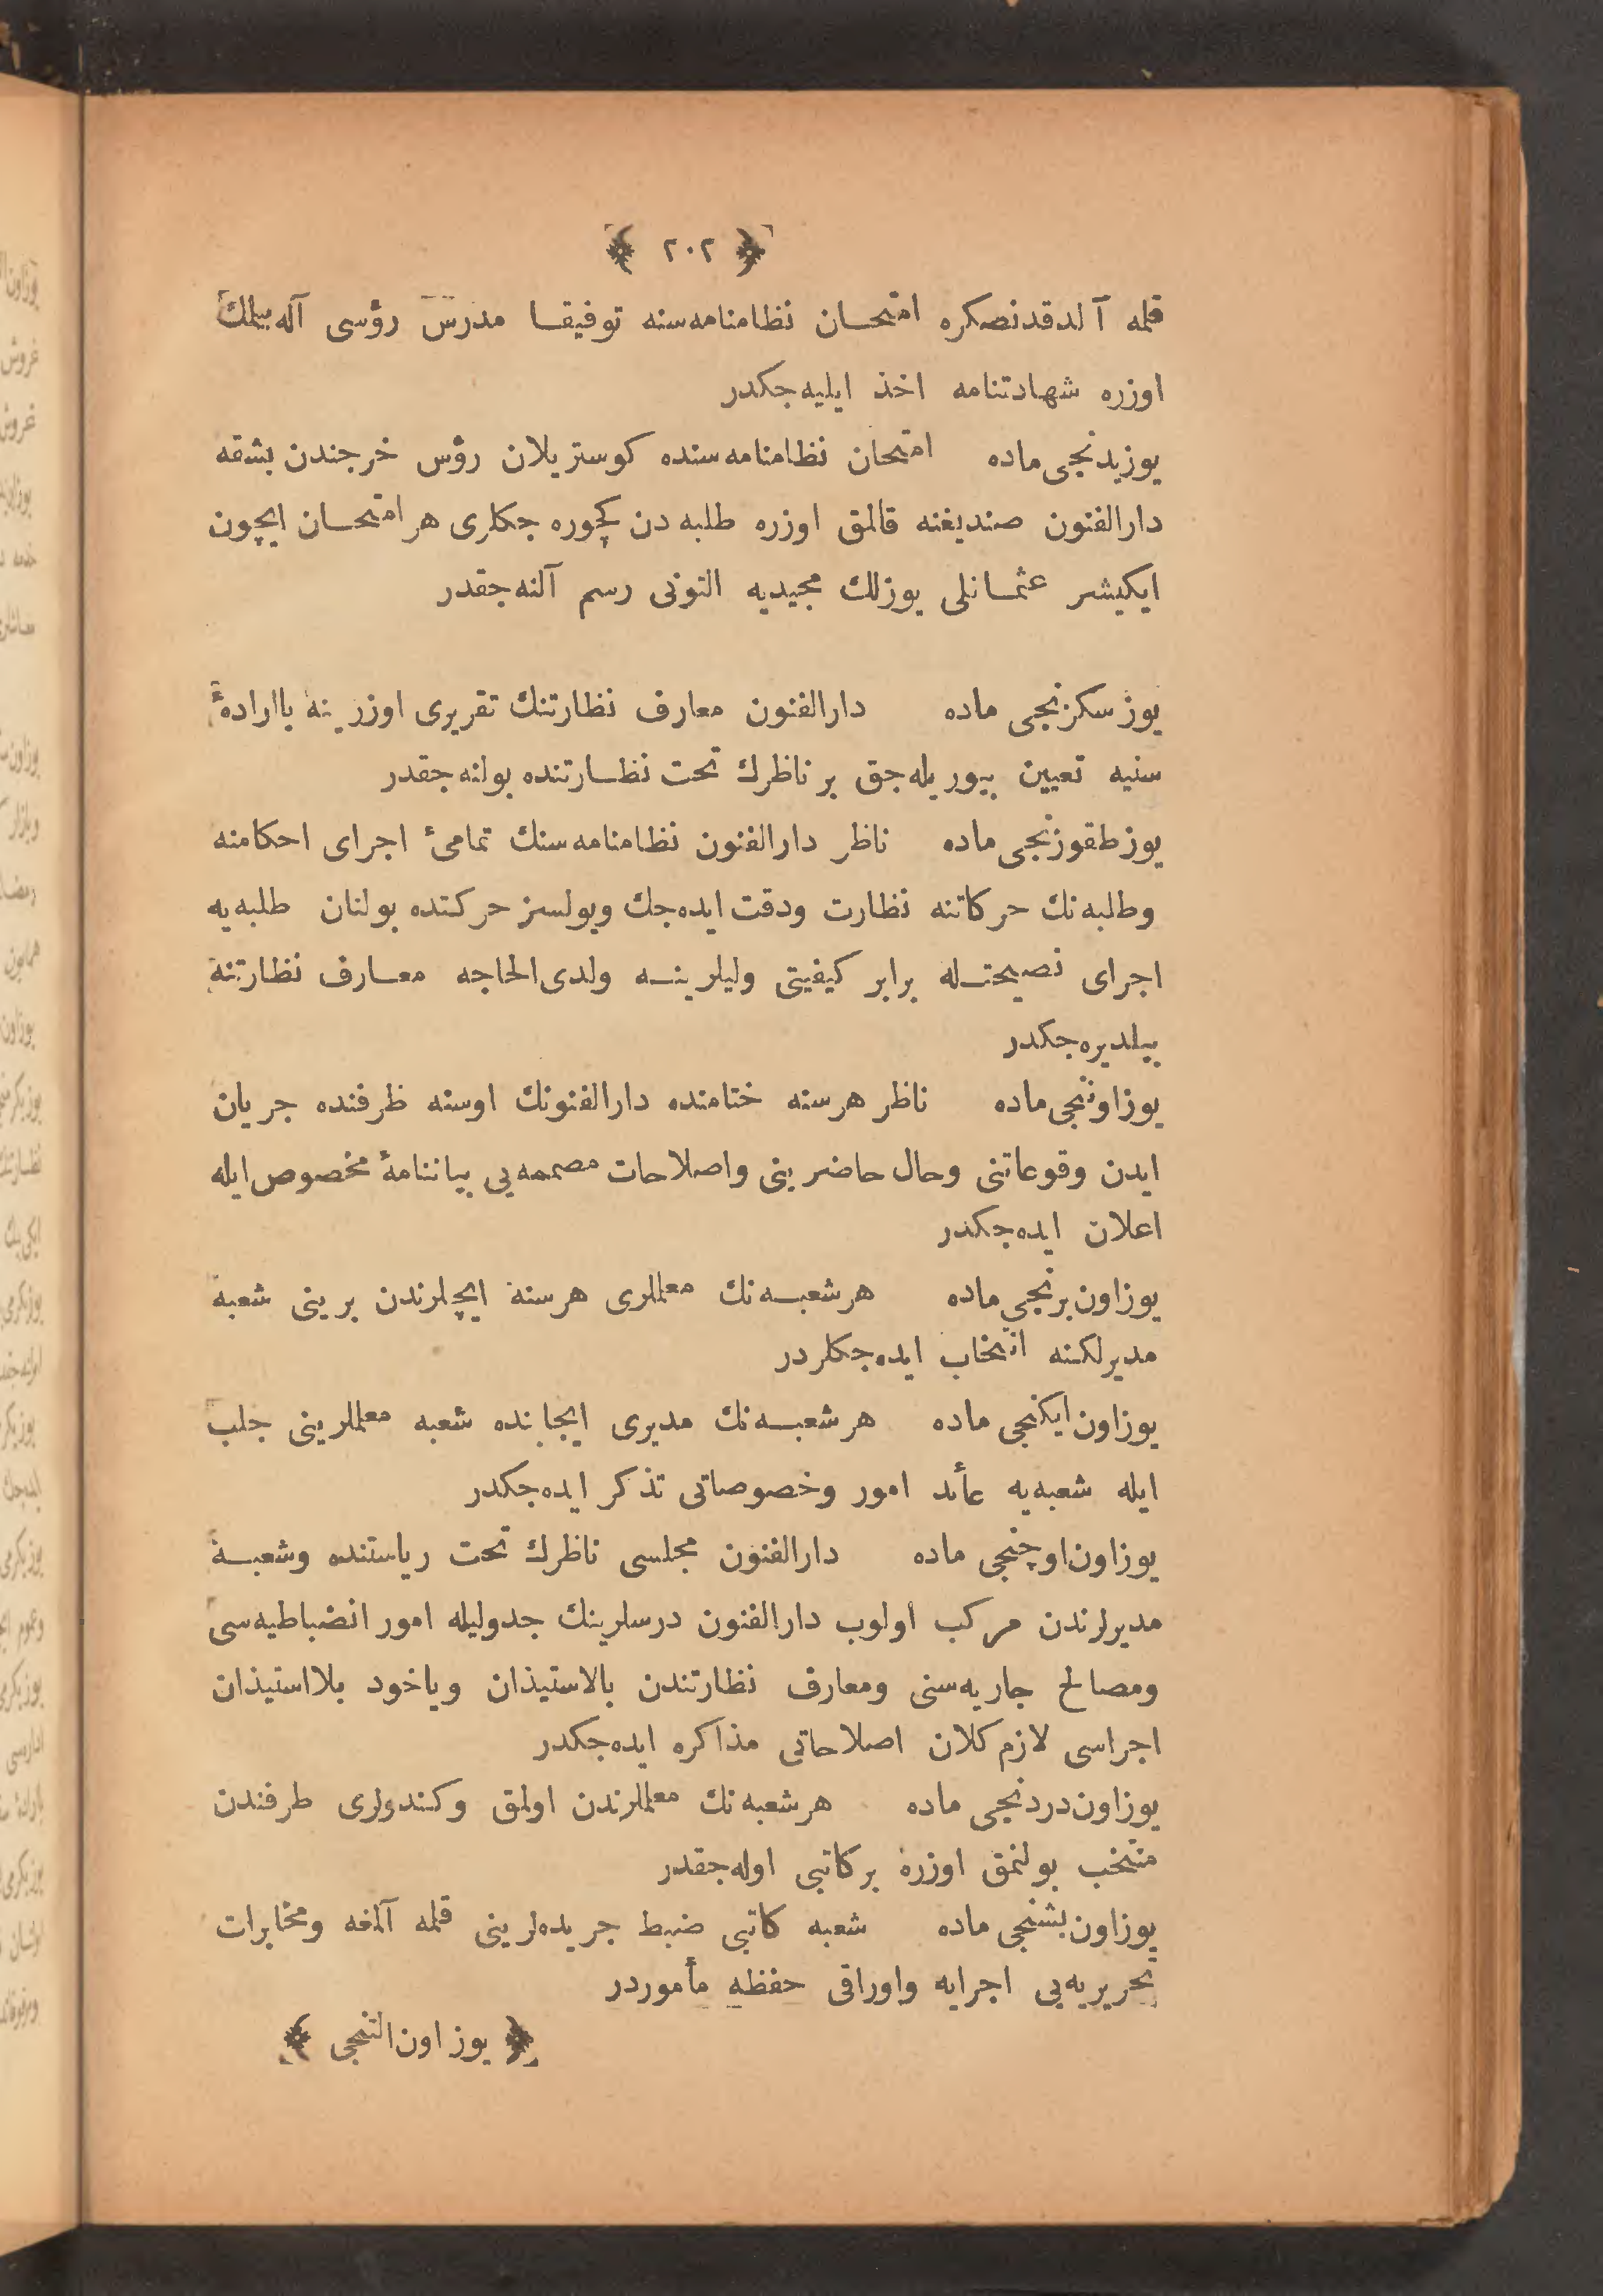 ﴿ ٢٠٢ ﴾
قلمه آلدقدنصكره امتحـان نظامنامه‌سنه توفيقـا مدرس رؤسى آله‌بيلمك
اوزره شهادتنامه اخذ ايليه‌جكدر
يوزيدنجى ماده امتحان نظامنامه‌سنده كوستريلان رؤس خرجندن بشقه
دارالفنون صنديغنه قالمق اوزره طلبه‌دن كچوره‌جكلرى هر امتحـان ايچون
ايكيشر عثمـانلى يوزلك مجيديه التونى رسم آلنه‌جقدر
يوزسكزنجى ماده دارالفنون معارف نظارتنك تقريرى اوزرينه بااراده‌ٔ
سنيه تعيين بيوريله‌جق بر ناظرك تحت نظـارتنده بولنه‌جقدر
يوزطقوزنجى ماده ناظر دارالفنون نظامنامه‌سنك تمامىٔ اجراى احكامنه
وطلبه‌نك حركاتنه نظارت ودقت ايده‌جك ويولسز حركتده بولنان طلبه‌يه
اجراى نصيحتـله برابر كيفيتى وليلرينـه ولدى‌الحاجه معـارف نظارتنه
بيلديره‌جكدر
يوزاوننجى ماده ناظر هرسنه ختامنده دارالفنونك اوسنه ظرفنده جريان
ايدن وقوعاتنى وحال حاضرينى واصلاحات مصممه‌يى بياننامهٔ مخصوص ايله
اعلان ايده‌جكدر
يوزاون‌برنجى ماده هرشعبـه‌نك معلملرى هرسنه ايچلرندن برينى شعبه
مديرلكنه انتخاب ايده‌جكلردر
يوزاون‌ايكنجى ماده هرشعبـه‌نك مديرى ايجابنده شعبه معلملرينى جلب
ايله شعبه‌يه عأئد امور وخصوصاتى تذكر ايده‌جكدر
يوزاون‌اوچنجى ماده دارالفنون مجلسى ناظرك تحت رياستنده وشعبـه
مديرلرندن مركب اولوب دارالفنون درسلرينك جدوليله امور انضباطيه‌سى
ومصالح جاريه‌سنى ومعارف نظارتندن بالاستيذان وياخود بلااستيذان
اجراسى لازم كلان اصلاحاتى مذاكره ايده‌جكدر
يوزاون‌دردنجى ماده هرشعبه‌نك معلملرندن اولمق وكندولرى طرفندن
منتخب بولنمق اوزره بركاتبى اوله‌جقدر
يوزاون‌بشنجى ماده شعبه كاتبى ضبط جريده‌لرينى قلمه آلمغه ومخابرات
تحريريه‌يى اجرايه واوراقى حفظه مأموردر
﴿ يوز اون‌التنجى ﴾